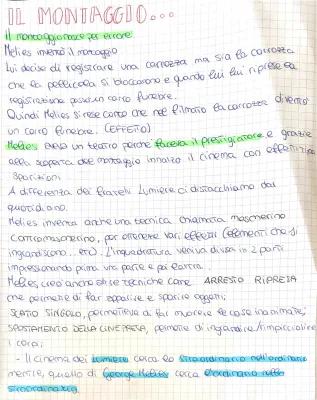 IL MONTAGGIO...
Il montaggio nasce per errore
Melies inventò il montaggio
Lui decise di registrare una carrozza ma sia la carrozza
che la pellicola si bloccarono e quando lui riprese la
registrazione passò un carro funebre.
Quindi Melies si rese conto che nel filmato la carrozza diventò
un carro funebre. (effetto)
Melies aveva un teatro perché faceva il prestigiatore e grazie
alla scoperta del montaggio innalzo il cinema con effetti
sparizioni
A differenza dei fratelli Lumiere ci distacchiamo dal
quotidiano.
Melies inventa anche una tecnica chiamata mascherino
contromascherino, per ottenere vari effetti (elementi che si
ingrandiscono...etc). L'inquadratura veniva divisa in 2 parti
impressionando prima una parte e poi l'altra.
Melies creò anche altre tecniche come ARRESTO RIPRESA
che permette di far apparire e sparire oggetti;
SCATTO SINGOLO, permetteva di far muovere le cose inanimate;
SPOSTAMENTO DELLA CINEPRESA, permette di ingrandire/rimpicciolire
i corpi;
- Il cinema dei Lumiere cerca lo straordinario nell'ordinario
mentre, quello di George Melies cerca l'ordinario nello
straordinario